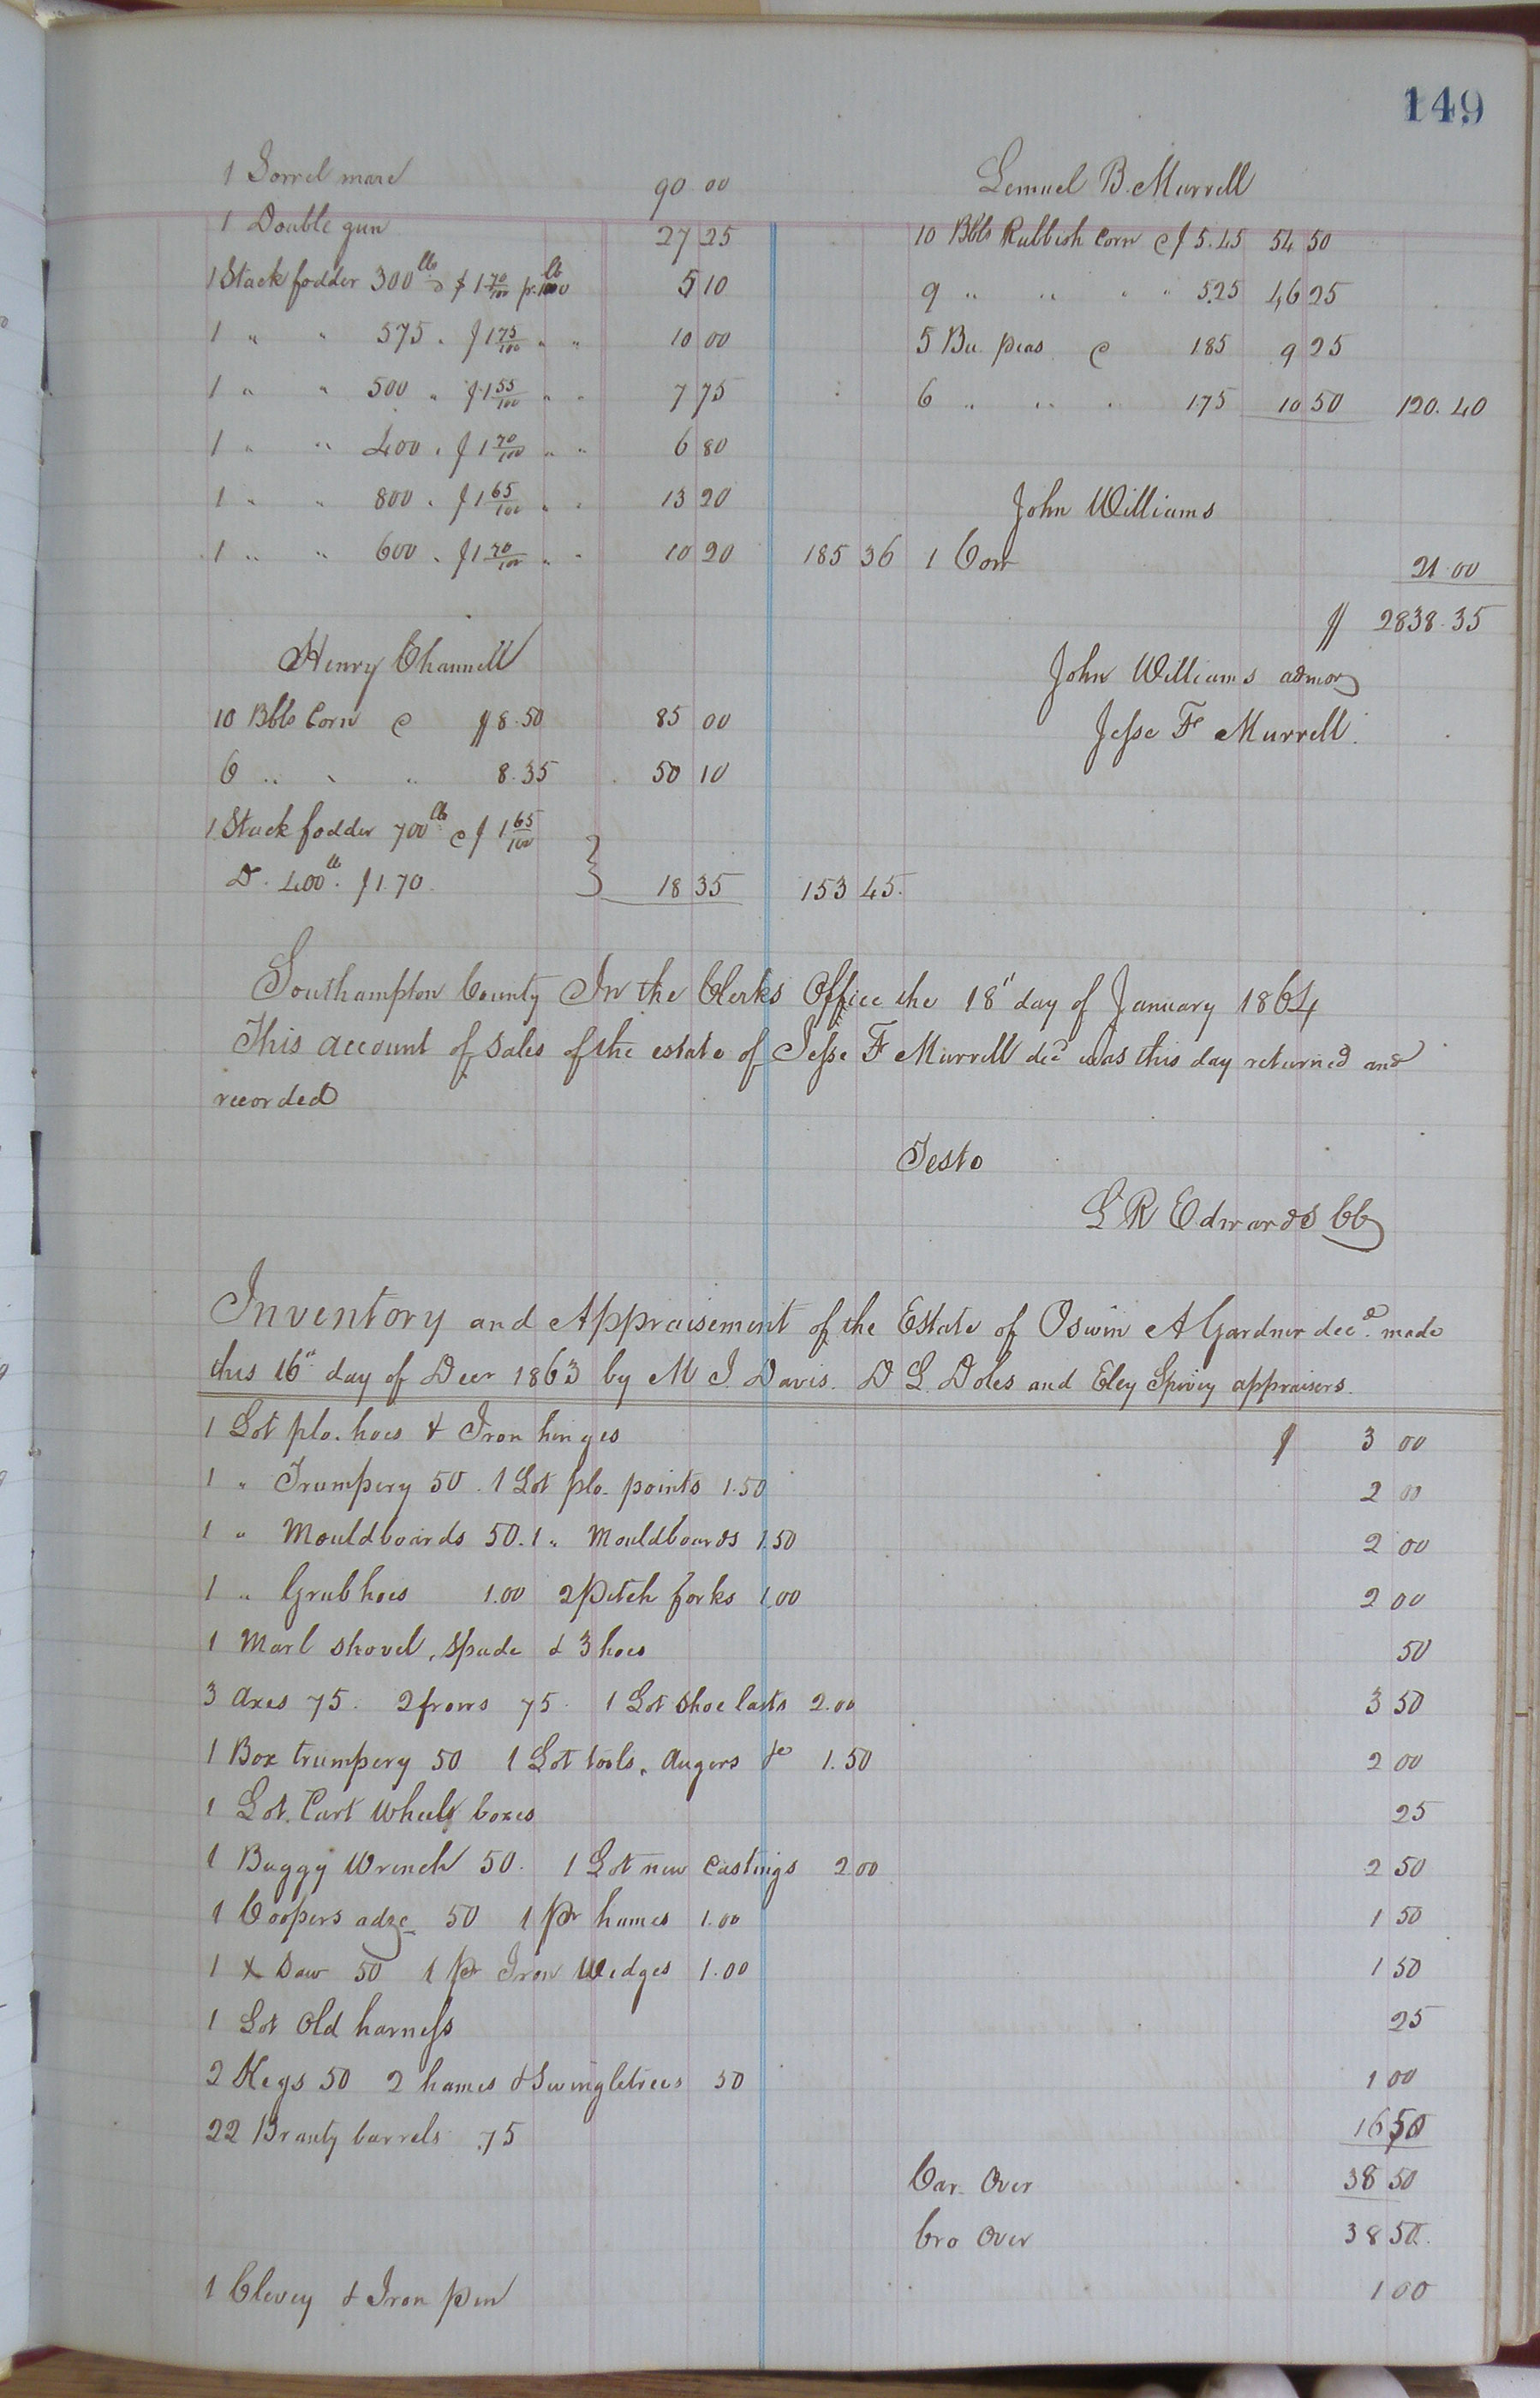 149
1 Sorrel mare 90 00
1 Double gun 27 25
1 Stack fodder 300 lb @ $1 70/100 pr. 100 lb 5 10
1 " " 575 " $1 75/100 " " 10 00
1 " " 500 " $1 55/100 " " 7 75
1 " " 400 " $1 70/100 " " 6 80
1 " " 800 " $1 65/100 " " 13 20
1 " " 600 " $1 70/100 " " 10 20 185 36
Henry Channell
10 Bbls Corn @ $8.50 85 00
6 " " " 8.35 50 10
1 Stack fodder 700 lb @ $1 65/100
Do. 400 lb. $1.70 } 18 35 153 45.
Lemuel B. Murrell
10 Bbls Rubbish Corn @ $5.45 54 50
9 " " " " 5.25 46 25
5 Bu. peas @ 1.85 9 25
6 " " " 1.75 10 50 120.40
John Williams
1 Cow 21.00
$ 2838.35
John Williams admor
Jesse F Murrell.
Southampton County In the Clerks Office the 18" day of January 1864
This account of Sales of the estate of Jesse F Murrell decd was this day returned and
recorded
Teste
L R Edwards CC
Inventory and Appraisement of the Estate of Oswin A Gardner decd. made
this 16" day of Decr 1863 by M J. Davis. D L. Doles and Eley Spivey appraisers.
1 Lot plo. hoes & Iron hinges $ 3 00
1 " Trumpery 50. 1 Lot plo. points 1.50 2 00
1 " Mouldboards 50. 1 " Mouldboards 1.50 2 00
1 " Grub hoes 1.00 2 Pitch forks 1.00 2 00
1 Marl shovel, Spade & 3 hoes 50
3 Axes 75. 2 frows 75. 1 Lot Shoe lasts 2.00 3 50
1 Box trumpery 50 1 Lot tools, Augers &c 1.50 2 00
1 Lot. Cart Wheels boxes 25
1 Buggy Wrench 50. 1 Lot new Castings 2 00 2 50
1 Coopers adze 50 1 Pr hames 1.00 1 50
1 X Saw 50 1 Pr Iron Wedges 1.00 1 50
1 Lot Old harness 25
2 Kegs 50 2 hames & Swingletrees 50 1 00
22 Brandy barrels .75 16 50
Car. Over 38 50
Bro Over 38 50.
1 Clevey & Iron pin 1 00